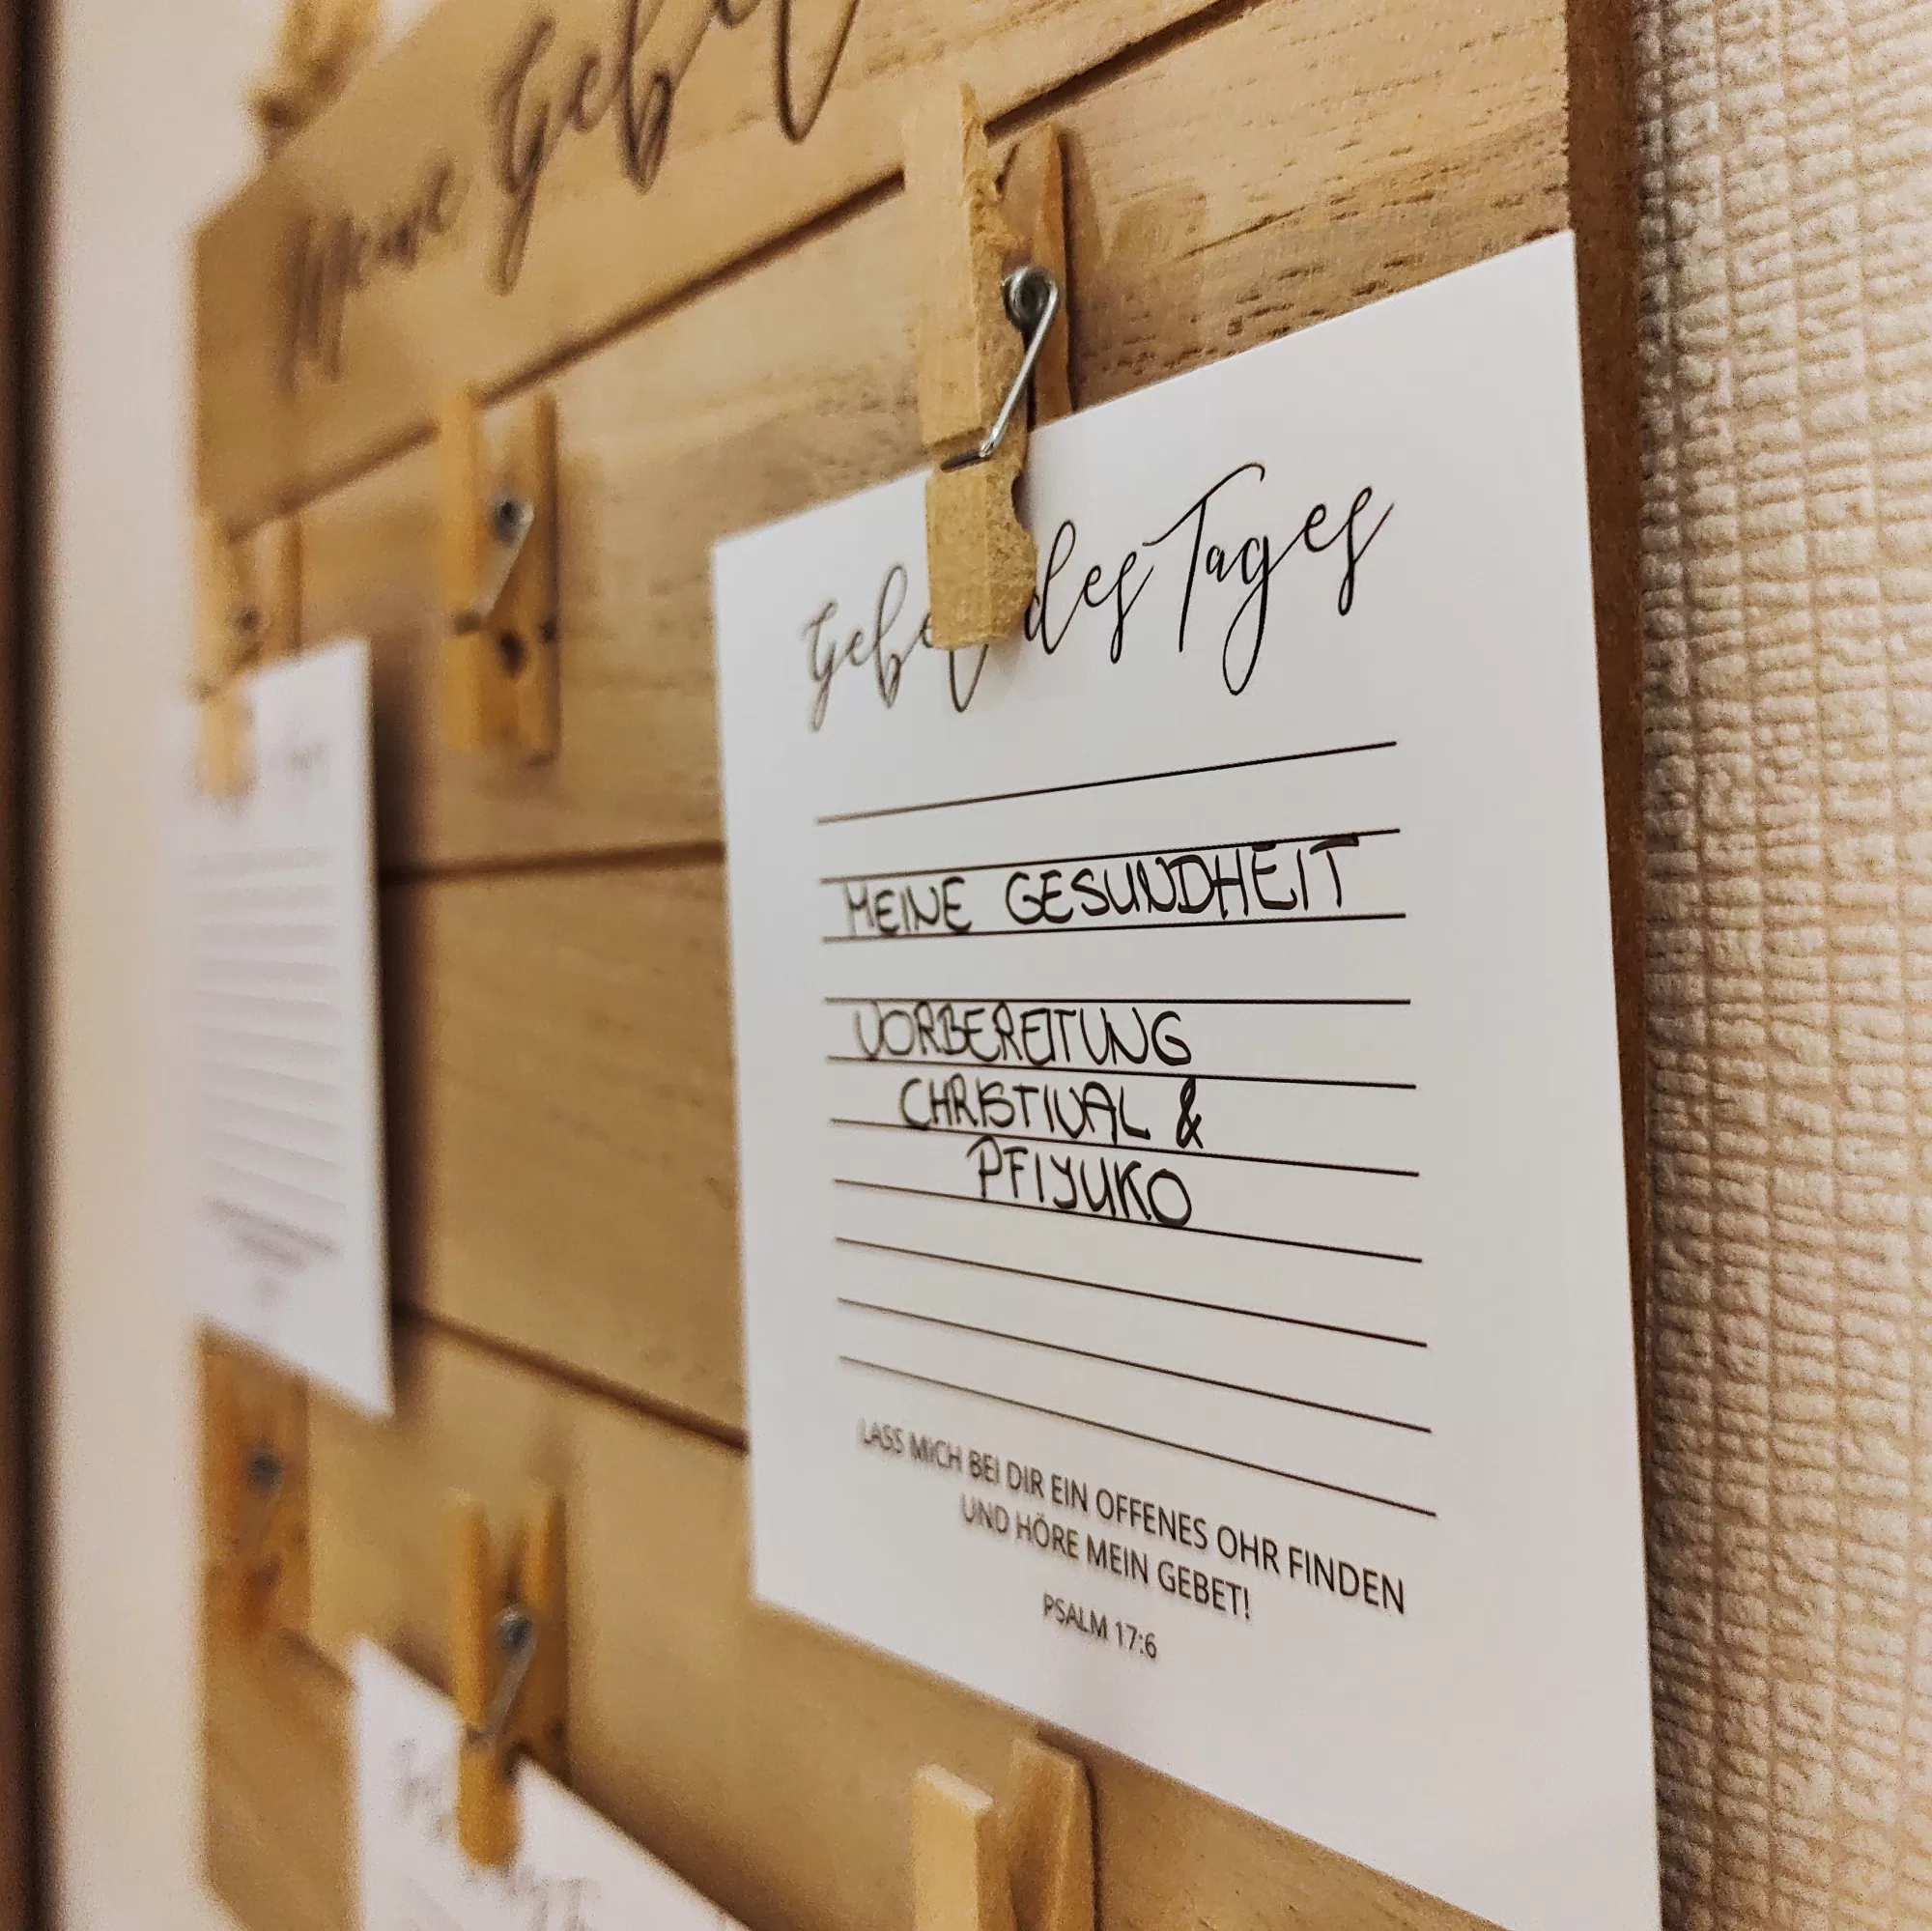 Meine Gebe
Gebet des Tages
MEINE GESUNDHEIT
VORBEREITUNG
CHRISTIVAL &
PFIJUKO
LASS MICH BEI DIR EIN OFFENES OHR FINDEN
UND HÖRE MEIN GEBET!
PSALM 17:6